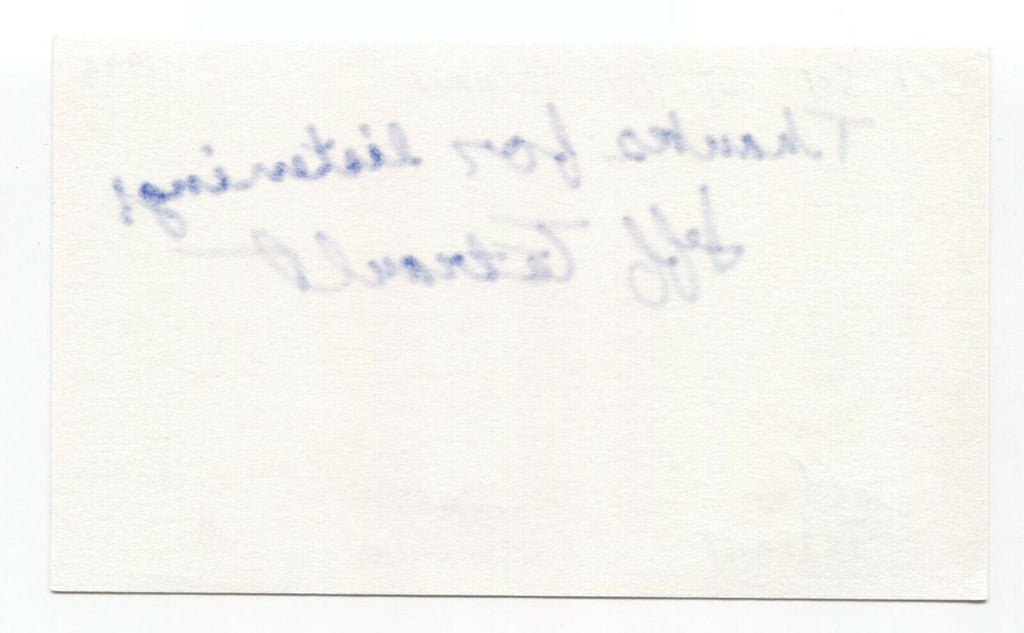 Thanks for listening!
Jeff Tetrault